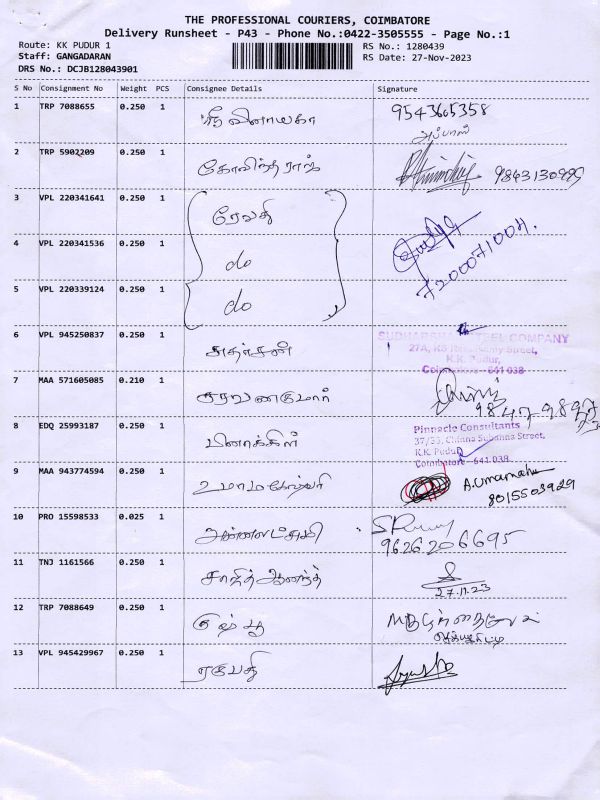 THE PROFESSIONAL COURIERS, COIMBATORE
Delivery Runsheet - P43 - Phone No.:0422-3505555 - Page No.:1
Route: KK PUDUR 1
RS No.: 1280439
Staff: GANGADARAN
RS Date: 27-Nov-2023
DRS No.: DCJB128043901
S No Consignment No Weight PCS Consignee Details Signature
1 TRP 7088655 0.250 1 ஸ்ரீ விநாயகா 9543605358
அப்பாஸ்
2 TRP 5902209 0.250 1 கோவிந்தராஜ் 9843130995
3 VPL 220341641 0.250 1 ரேவதி
4 VPL 220341536 0.250 1 do 7200071004.
5 VPL 220339124 0.250 1 do
6 VPL 945250837 0.250 1 சுதர்சன் SUDHARSHAN STEEL COMPANY
27A, KS Ramasamy Street,
K.K. Pudur,
Coimbatore - 641 038
7 MAA 571605085 0.210 1 சரவணகுமார்
8 EDQ 25993187 0.250 1 பினாக்கிள் Pinnacle Consultants
37/33, Chinna Subanna Street,
K.K. Pudur
Coimbatore - 641 038
9 MAA 943774594 0.250 1 உமாமகேஸ்வரி A.Umamahe
8015503929
10 PRO 15598533 0.025 1 அன்னலட்சுமி 9626206695
11 TNJ 1161566 0.250 1 சாஜித் ஆனந்த்
27.11.23
12 TRP 7088649 0.250 1 குஷ்பூ
13 VPL 945429967 0.250 1 ரகுபதி